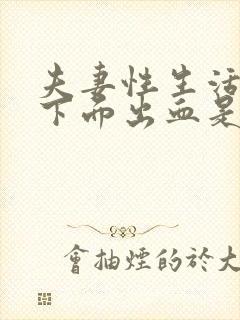 夫妻性生活
下面出血是
會抽煙的於大